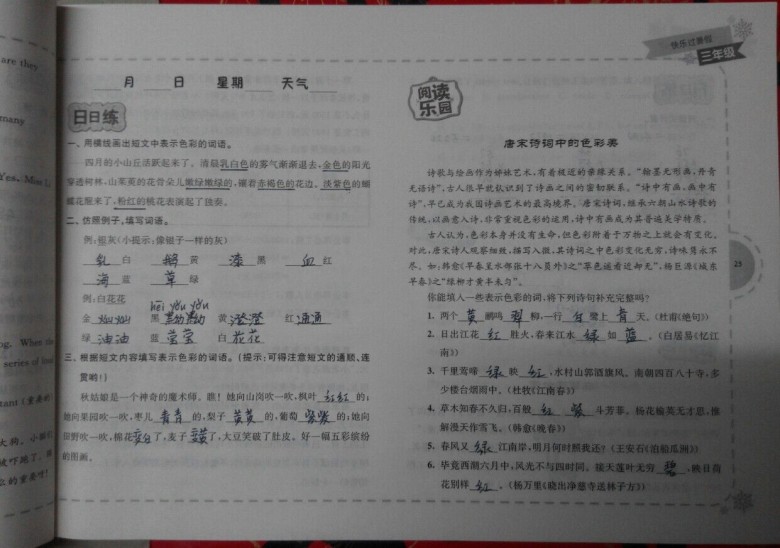 are they
many
Yes, M
ng. When the
series of loud
tant (重要的)
快乐过暑假
三年级
月 日 星期 天气
日日练
一、用横线画出短文中表示色彩的词语。
四月的小山丘活跃起来了。清晨乳白色的雾气渐渐退去,金色的阳光
穿透树林,山茱萸的花骨朵儿嫩绿嫩绿的,镶着赤褐色的花边。淡紫色的蝴
蝶花醒来了,粉红的桃花表演起了独奏。
二、仿照例子,填写词语。
例:银灰(小提示:像银子一样的灰)
乳 白 鹅 黄 漆 黑 血 红
海 蓝 草 绿
例:白花花
hēi yōu yōu
金 灿灿 黑 黝黝 黄 澄澄 红 通通
绿 油油 蓝 莹莹 白 花花
三、根据短文内容填写表示色彩的词语。(提示:可得注意短文的通顺、连
贯哟!)
秋姑娘是一个神奇的魔术师。瞧!她向山岗吹一吹,枫叶 红红 的;
她向果园吹一吹,枣儿 青青 的,梨子 黄黄 的,葡萄 紫紫 的;她向
田野吹一吹,棉花 变白 了,麦子 变黄 了,大豆笑破了肚皮。好一幅五彩缤纷
的图画。
阅读乐园
唐宋诗词中的色彩美
诗歌与绘画作为姊妹艺术,有着极近的亲缘关系。“翰墨无形画,丹青
无语诗”,古人很早就认识到了诗画之间的密切联系。“诗中有画,画中有
诗”,早已成为我国诗画艺术的最高境界。唐宋诗词,继承六朝山水诗歌的
传统,以画意入诗,非常重视色彩的运用,诗中有画成为其普遍美学特质。
古人认为,色彩本身并没有生命,但色彩附着于万物之上就会有变化。
对此,唐宋诗人观察细致,描写入微,其诗词之中色彩变化无穷,诗味隽永不
尽。如:韩愈《早春呈水部张十八员外》之“草色遥看近却无”,杨巨源《城东
早春》之“绿柳才黄半未匀”。
你能填入一些表示色彩的词,将下列诗句补充完整吗?
1. 两个 黄 鹂鸣 翠 柳,一行 白 鹭上 青 天。(杜甫《绝句》)
2. 日出江花 红 胜火,春来江水 绿 如 蓝 。(白居易《忆江
南》)
3. 千里莺啼 绿 映 红 ,水村山郭酒旗风。南朝四百八十寺,多
少楼台烟雨中。(杜牧《江南春》)
4. 草木知春不久归,百般 红 紫 斗芳菲。杨花榆荚无才思,惟
解漫天作雪飞。(韩愈《晚春》)
5. 春风又 绿 江南岸,明月何时照我还?(王安石《泊船瓜洲》)
6. 毕竟西湖六月中,风光不与四时同。接天莲叶无穷 碧 ,映日荷
花别样 红 。(杨万里《晓出净慈寺送林子方》)
25